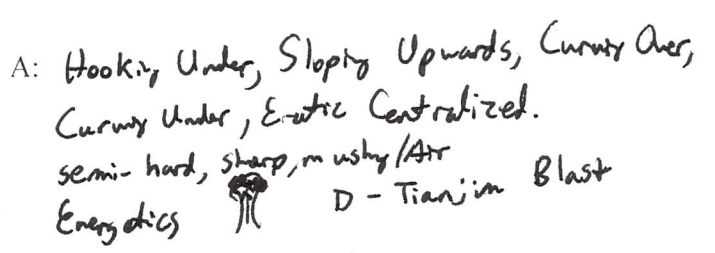 A: Hooking Under, Sloping Upwards, Curving Over,
Curving Under, Erratic Centralized.
semi-hard, sharp, mushy/Air
Energetics D - Tianjin Blast